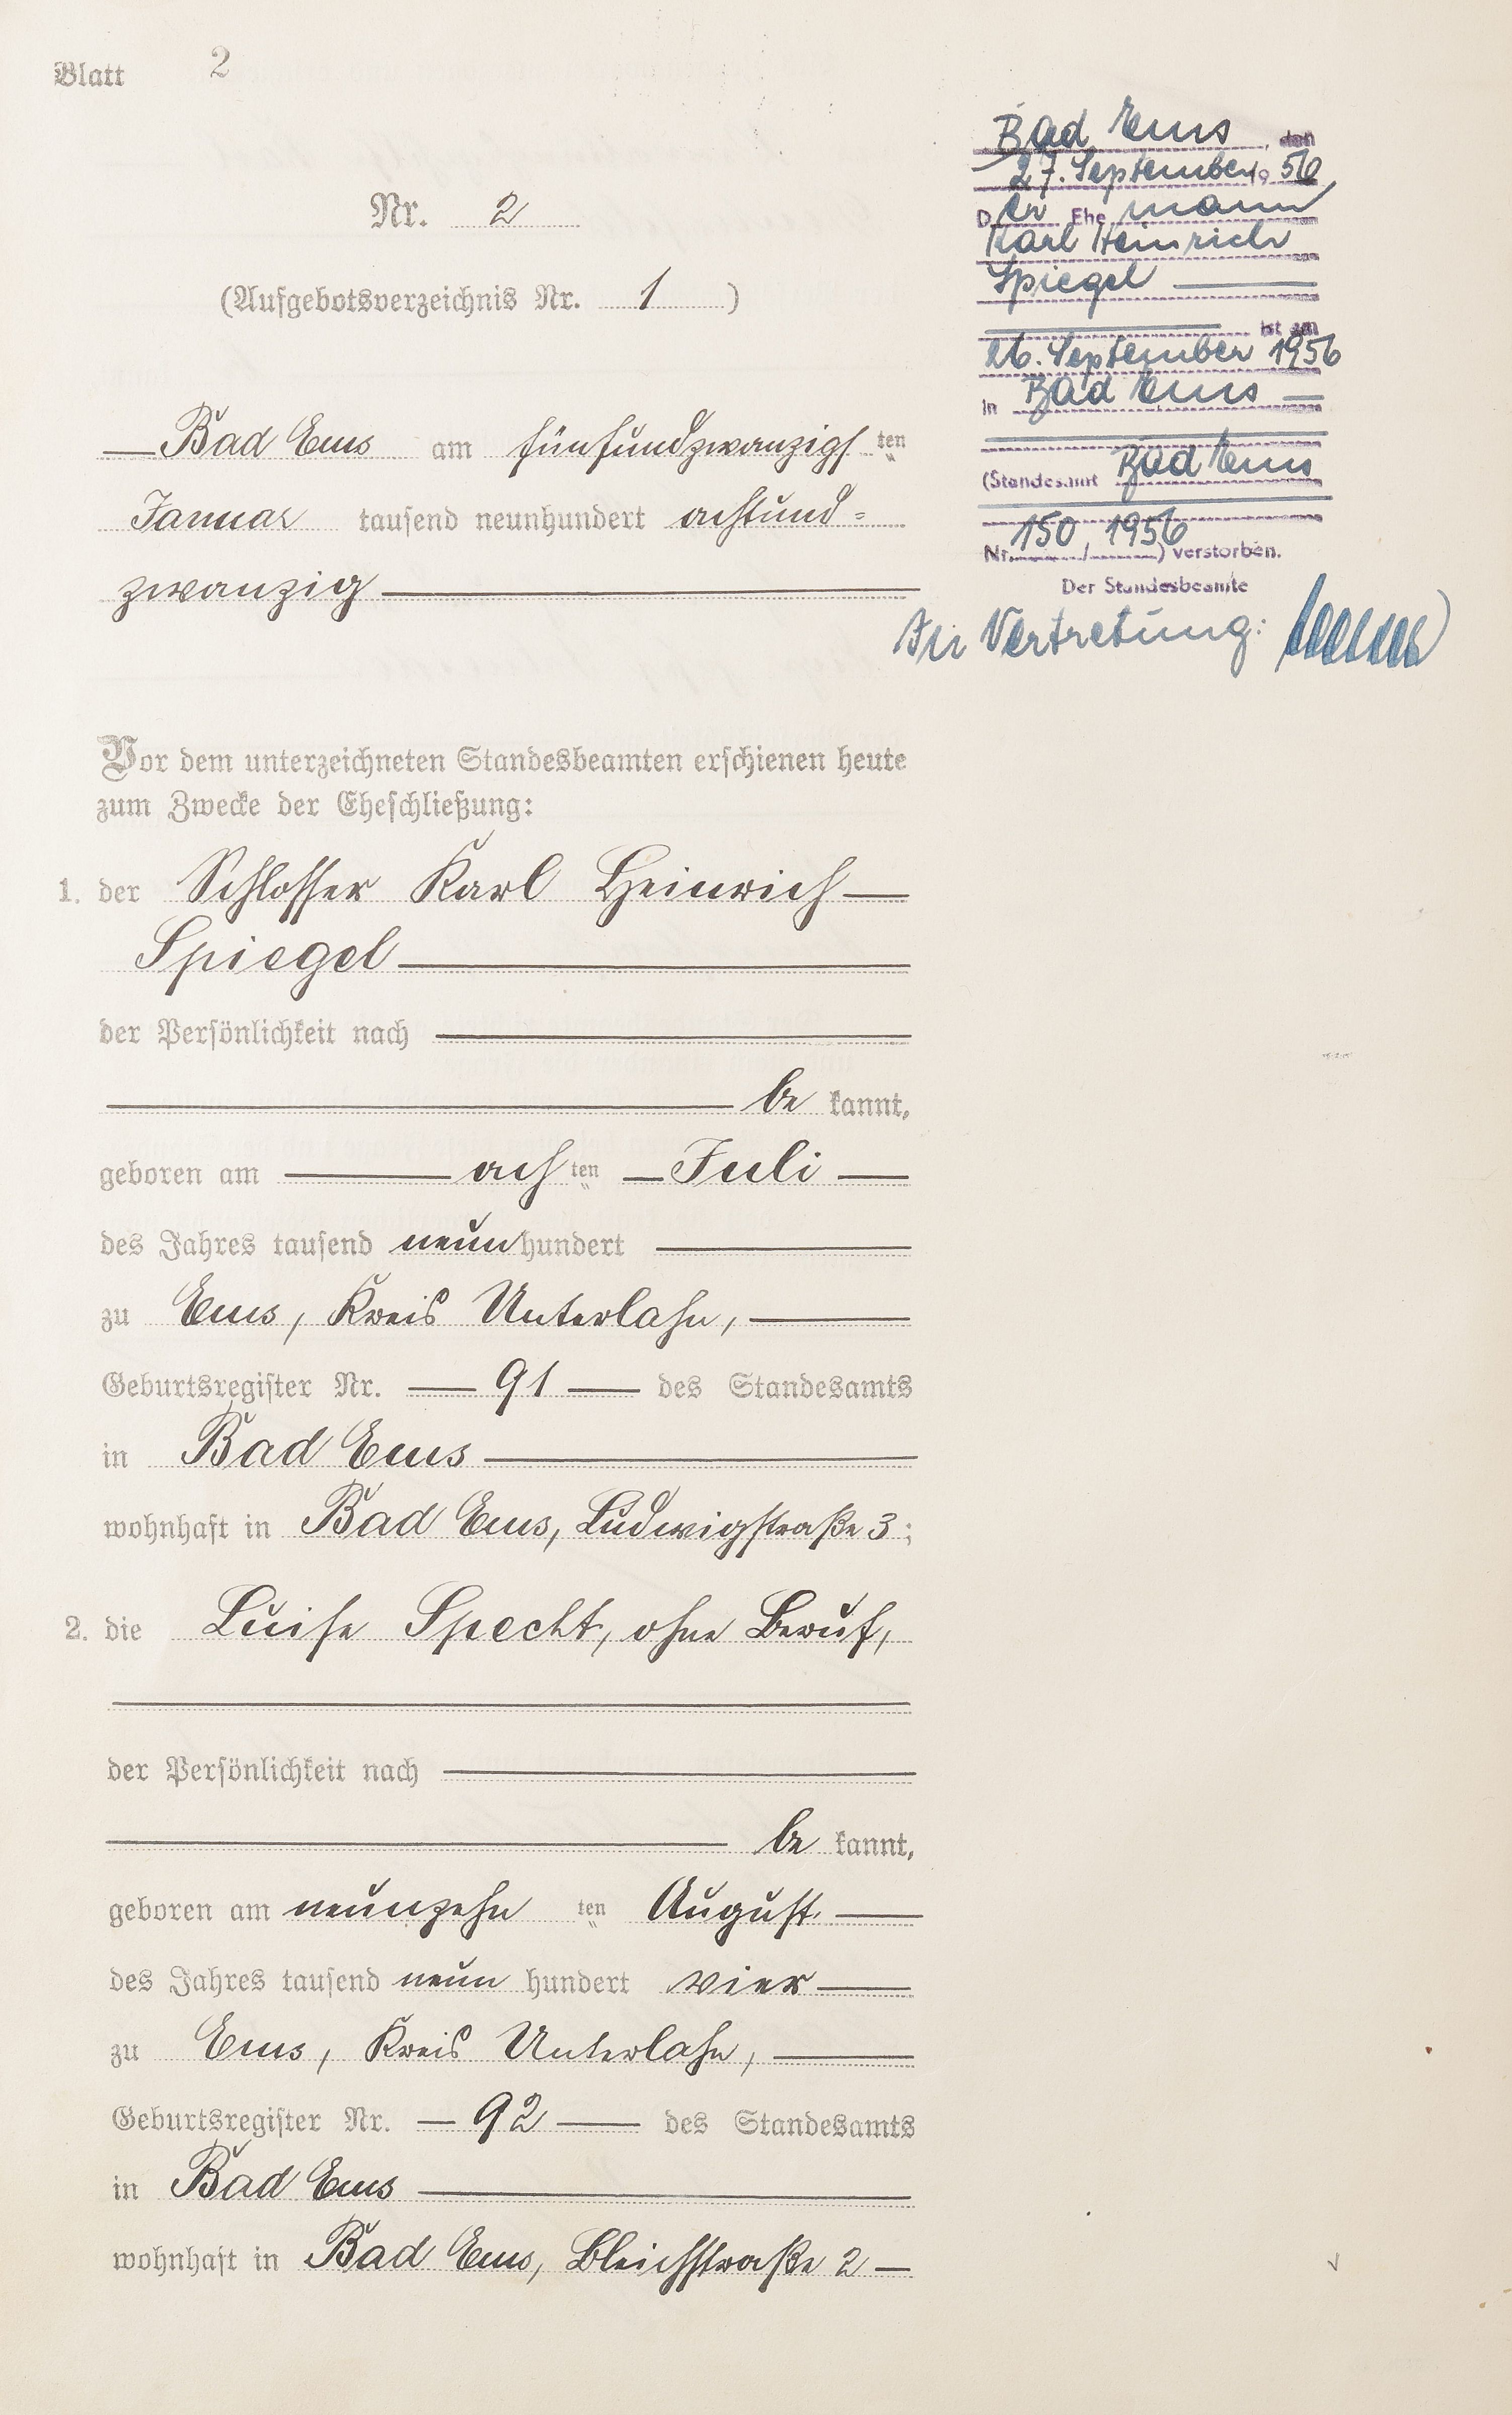 Blatt 2
Nr. 2
(Aufgebotsverzeichnis Nr. 1)
Bad Ems am fünfundzwanzigsten
Januar tausend neunhundert achtund=
zwanzig
Bad Ems, den
27. September 1956
Der Ehemann
Karl Heinrich
Spiegel
ist am
26. September 1956
in Bad Ems
(Standesamt Bad Ems
Nr. 150/1956) verstorben.
Der Standesbeamte
In Vertretung:
Vor dem unterzeichneten Standesbeamten erschienen heute
zum Zwecke der Eheschließung:
1. der Schlosser Karl Heinrich
Spiegel
der Persönlichkeit nach
be kannt,
geboren am achten Juli
des Jahres tausend neunhundert
zu Ems, Kreis Unterlahn,
Geburtsregister Nr. 91 des Standesamts
in Bad Ems
wohnhaft in Bad Ems, Ludwigstraße 3;
2. die Luise Specht, ohne Beruf,
der Persönlichkeit nach
be kannt,
geboren am neunzehn ten August
des Jahres tausend neun hundert vier
zu Ems, Kreis Unterlahn,
Geburtsregister Nr. 92 des Standesamts
in Bad Ems
wohnhaft in Bad Ems, Bleichstraße 2